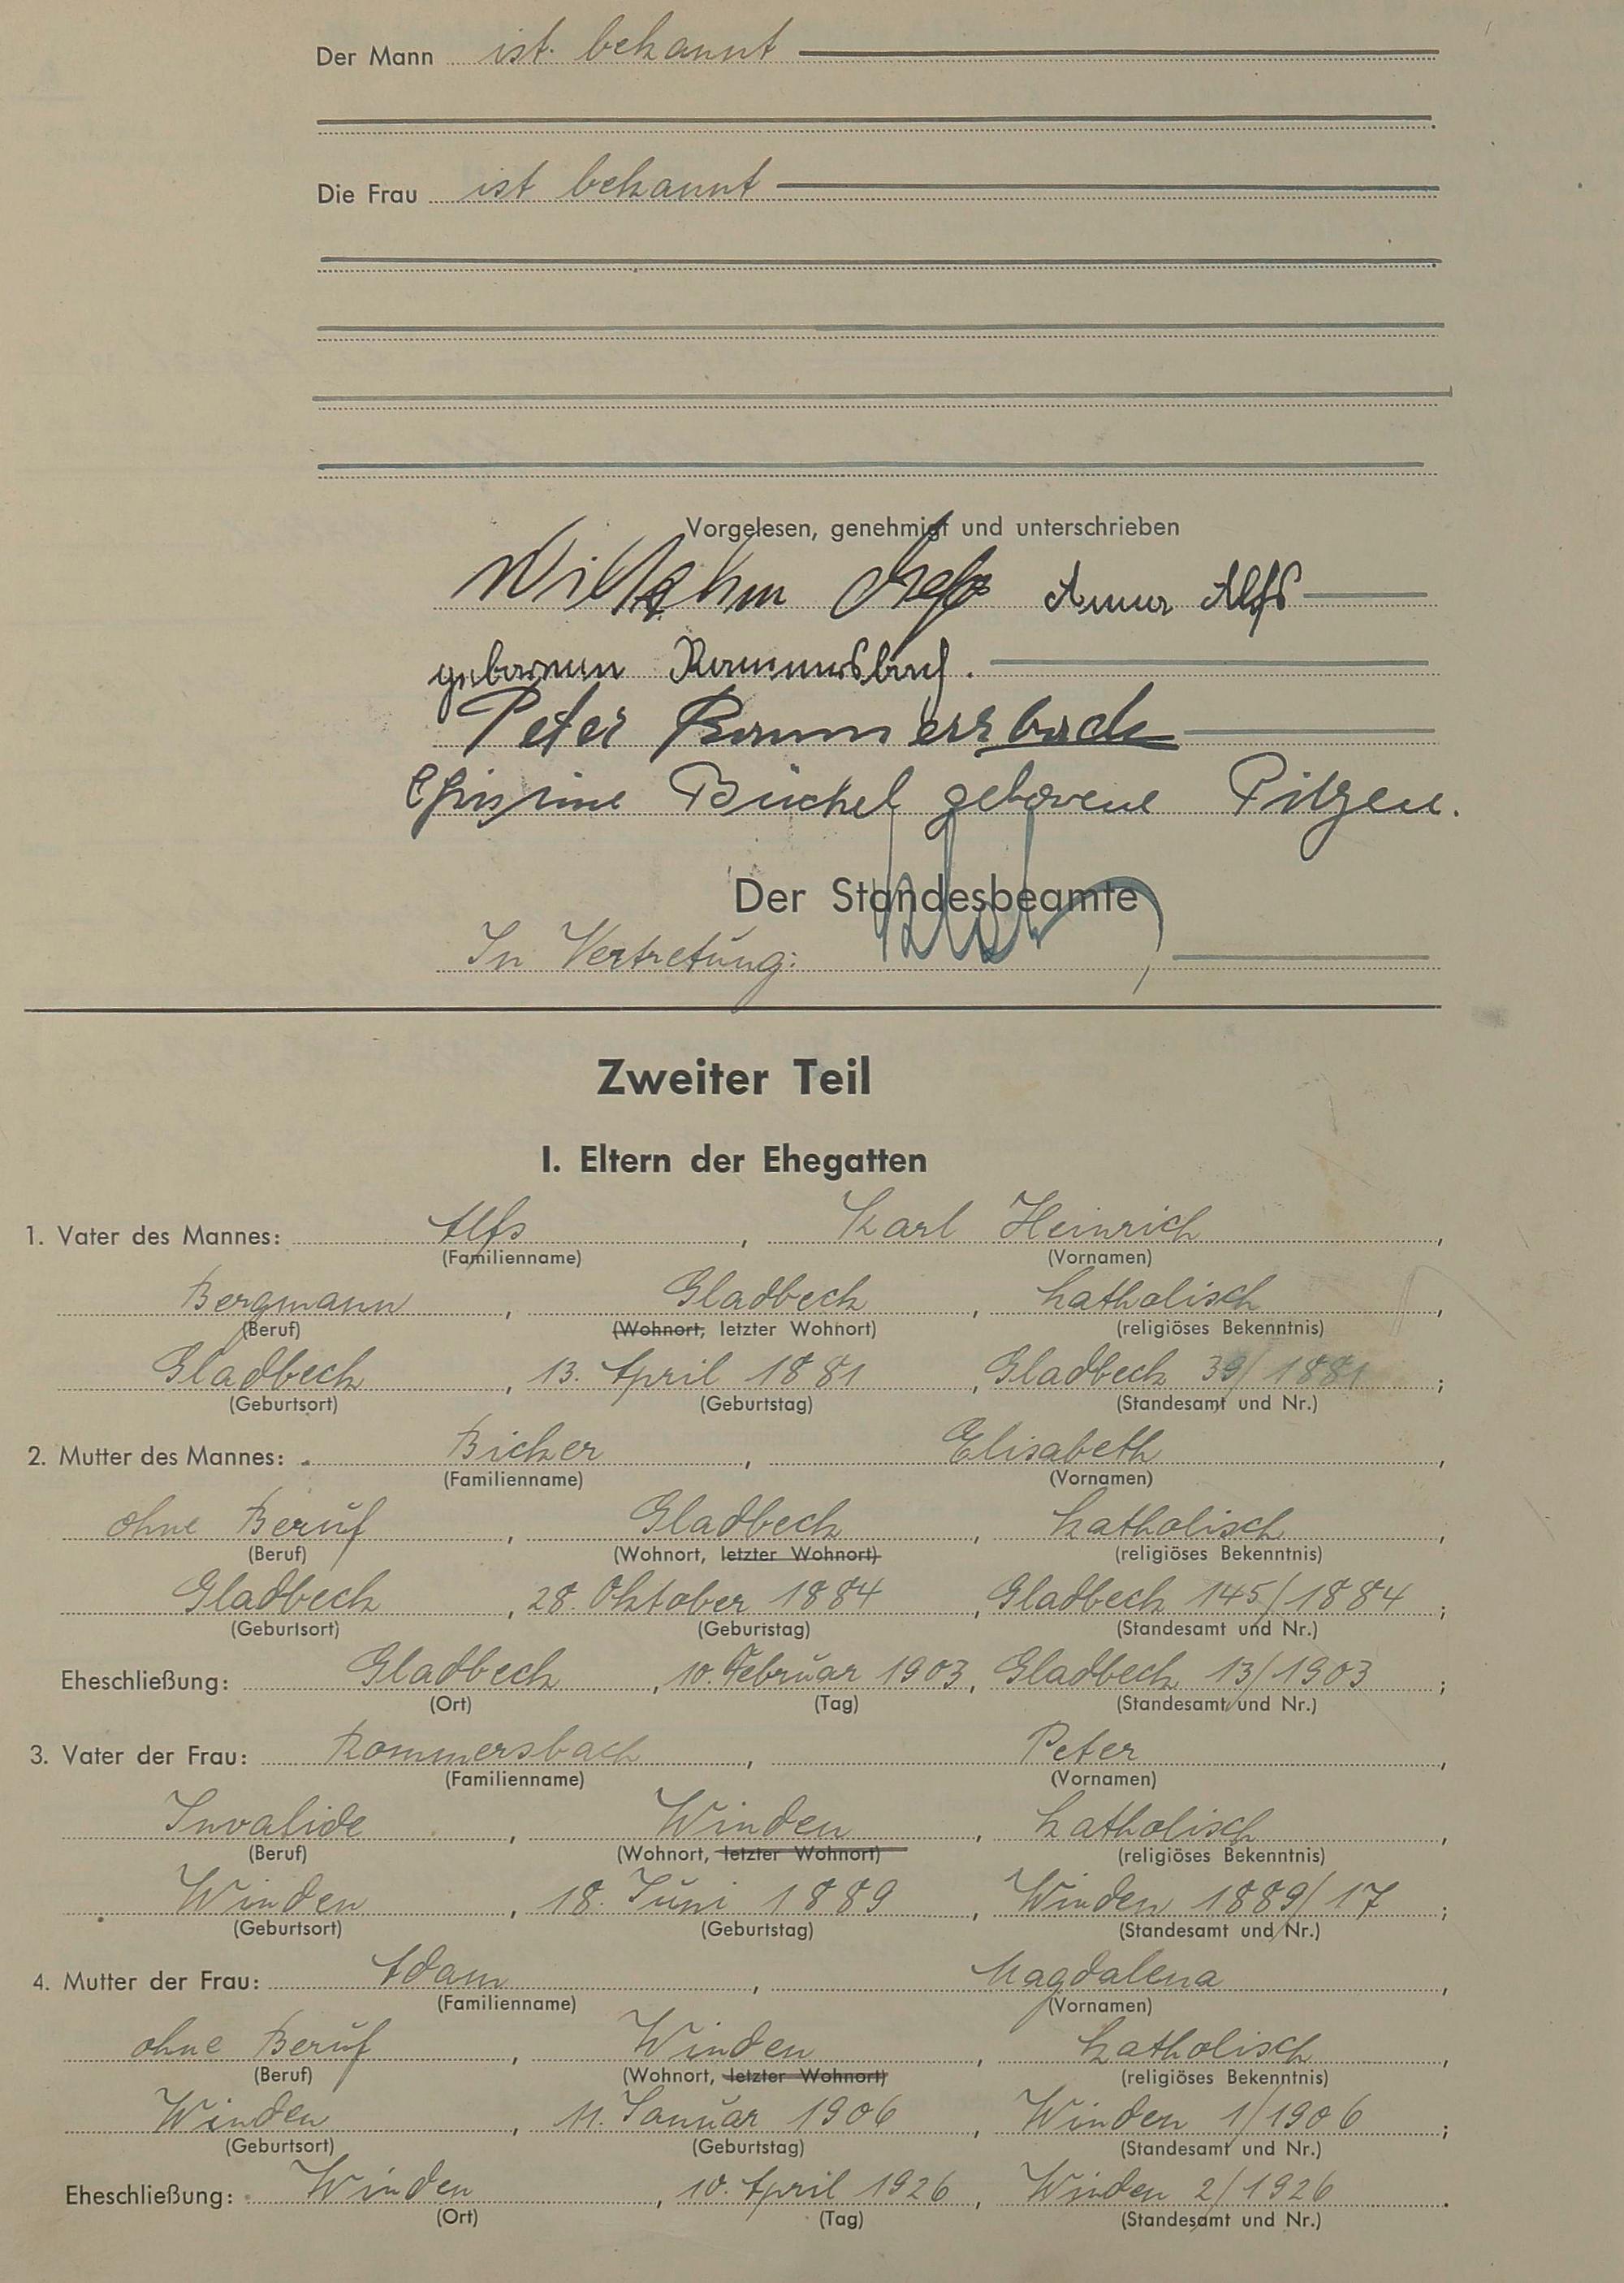 Der Mann ist bekannt
Die Frau ist bekannt
Vorgelesen, genehmigt und unterschrieben
Wilhelm Alfs Anna Alfs
geborenen Rommersbach.
Peter Rommersbach
Christine Büchel geborene Pilzen.
Der Standesbeamte
In Vertretung:
Zweiter Teil
I. Eltern der Ehegatten
1. Vater des Mannes: Alfs, Karl Heinrich,
(Familienname) (Vornamen)
Bergmann, Gladbeck, katholisch,
(Beruf) (Wohnort, letzter Wohnort) (religiöses Bekenntnis)
Gladbeck, 13. April 1881, Gladbeck 39/1881;
(Geburtsort) (Geburtstag) (Standesamt und Nr.)
2. Mutter des Mannes: Bicker, Elisabeth,
(Familienname) (Vornamen)
ohne Beruf, Gladbeck, katholisch,
(Beruf) (Wohnort, letzter Wohnort) (religiöses Bekenntnis)
Gladbeck, 28. Oktober 1884, Gladbeck 145/1884;
(Geburtsort) (Geburtstag) (Standesamt und Nr.)
Eheschließung: Gladbeck, 10. Februar 1903, Gladbeck 13/1903;
(Ort) (Tag) (Standesamt und Nr.)
3. Vater der Frau: Rommersbach, Peter,
(Familienname) (Vornamen)
Invalide, Winden, katholisch,
(Beruf) (Wohnort, letzter Wohnort) (religiöses Bekenntnis)
Winden, 18. Juni 1889, Winden 1889/17;
(Geburtsort) (Geburtstag) (Standesamt und Nr.)
4. Mutter der Frau: Adam, Magdalena,
(Familienname) (Vornamen)
ohne Beruf, Winden, katholisch,
(Beruf) (Wohnort, letzter Wohnort) (religiöses Bekenntnis)
Winden, 11. Januar 1906, Winden 1/1906;
(Geburtsort) (Geburtstag) (Standesamt und Nr.)
Eheschließung: Winden, 10. April 1926, Winden 2/1926.
(Ort) (Tag) (Standesamt und Nr.)